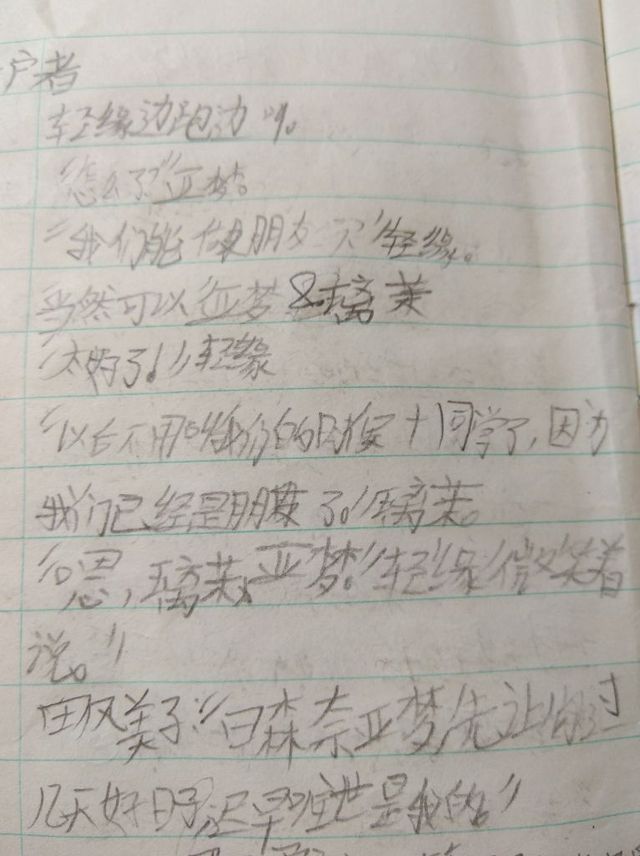 户者
轻缘边跑边
怎么了"亚梦。
"我们能做朋友 "轻缘。
当然可以"亚梦&璃茉
"太好了!"轻缘
"以后不用叫我们 同学了,因为
我们已经是朋友了。"璃茉。
"嗯,璃茉,亚梦。"轻缘微笑着
说。"
田风美子:"日森奈亚梦,先让你过
几天好日子,迟早 是我的。"